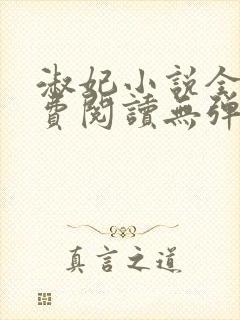 淑妃小说全
費閱讀無彈
真言之道